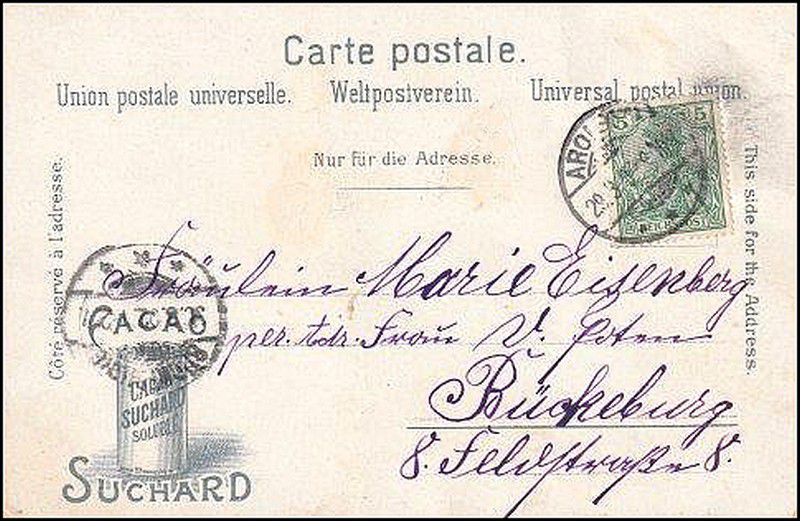 Carte postale.
Union postale universelle. Weltpostverein. Universal postal union.
Nur für die Adresse.
Côté réservé à l'adresse.
This side for the Address.
5 5
ARO
Fräulein Marie Eisenberg
per. Adr. Frau V.
Bückeburg
8. Feldstraße 8.
CACAO
CACAO
SUCHARD
SOLUBLE
SUCHARD